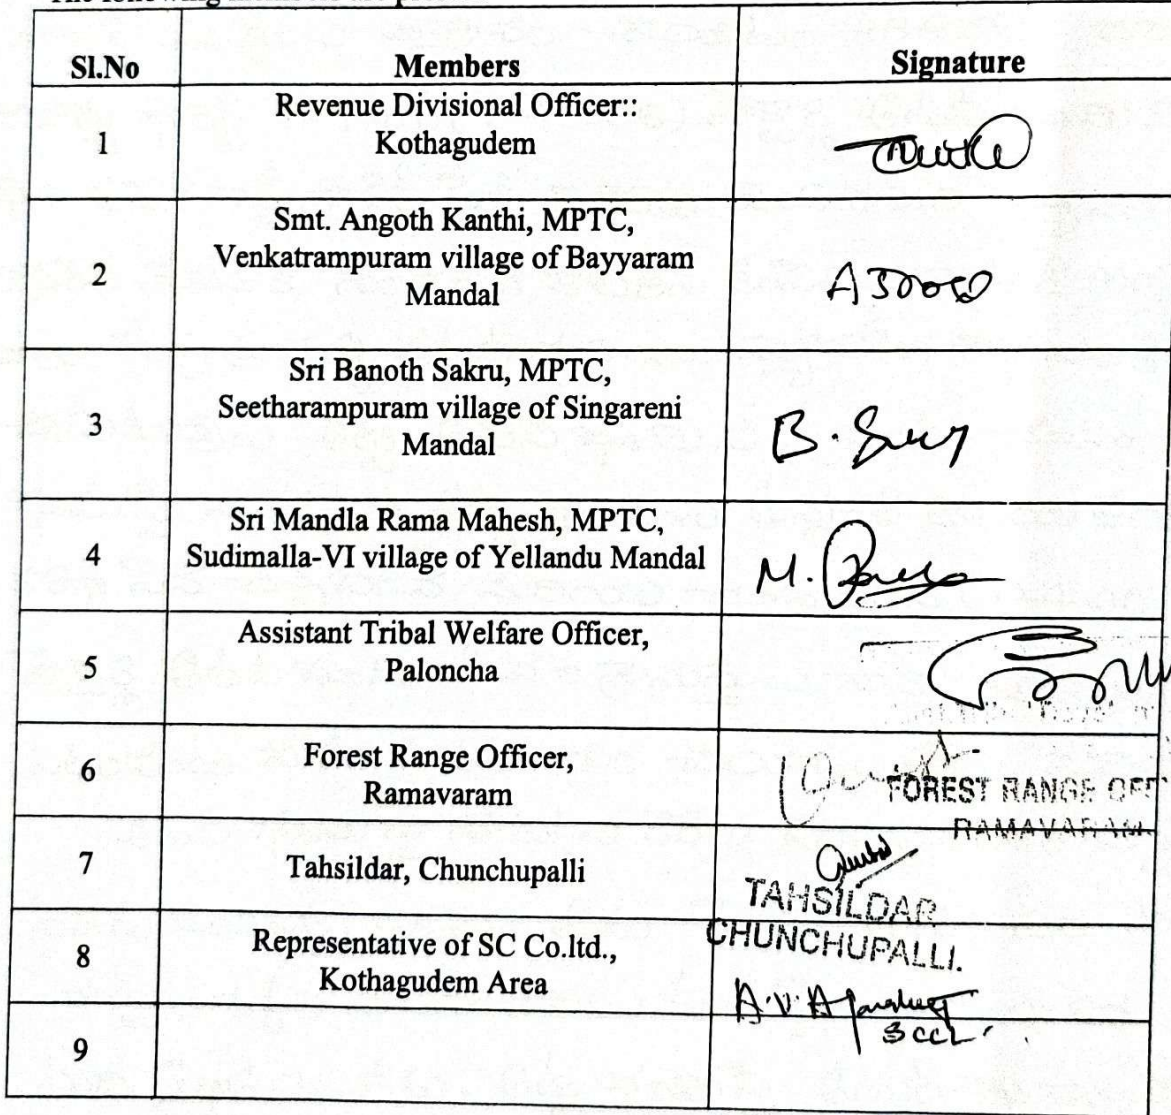 Sl.No Members Signature
1 Revenue Divisional Officer::
Kothagudem
2 Smt. Angoth Kanthi, MPTC,
Venkatrampuram village of Bayyaram
Mandal
3 Sri Banoth Sakru, MPTC,
Seetharampuram village of Singareni
Mandal
B.
4 Sri Mandla Rama Mahesh, MPTC,
Sudimalla-VI village of Yellandu Mandal
M.
5 Assistant Tribal Welfare Officer,
Paloncha
6 Forest Range Officer,
Ramavaram
FOREST RANGE OFF
RAMAVARAM
7 Tahsildar, Chunchupalli
TAHSILDAR
CHUNCHUPALLI.
8 Representative of SC Co.ltd.,
Kothagudem Area
A.V.A
SCCL
9